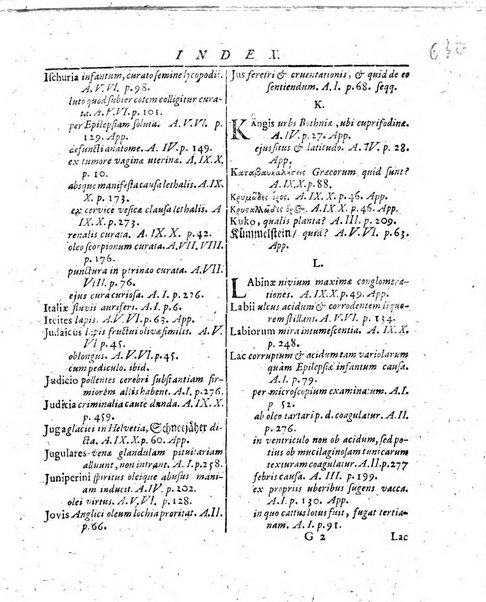 INDEX.
630
Ischuria infantum, curato semine lycopodii.
A. VI. p. 98.
luto quod subier cotem colligitur cura-
ta. A. V. VI. p. 101.
per Epilepsiam soluta. A. VI. p.
129. App.
defuncti anatome. A. IV. p. 149.
ex tumore vaginæ uterinæ. A. IX. X.
p. 10.
absque manifesta causa lethalis. A. IX.
X. p. 173.
ex cervice vesicæ clausa lethalis. A.
IX. X. p. 273.
renalis curata. A. IX. X. p. 42.
oleo scorpionum curata. A. VII. VIII.
p. 176.
punctura in perinæo curata. A. VII.
VIII. p. 76.
ejus cura curiosa. A. I. p. 76.
Italiæ fluvii auriferi. A. III. p. 83.
Itcites lapis. A. V. VI. p. 65.
Judaicus lapis fructui olivæ similis. A. V.
VI p. 45.
oblongus. A. V. VI. p. 45.
cum pediculo. ibid.
Judicio pollentes cerebri substantiam fir-
miorem aliis habent. A. I. p. 276.
Judicia criminalia caute danda. A. IX. X.
p. 459.
Juga glaciei in Helvetia, Schneejäher di-
cta. A. IX. X. p. 60. App.
Jugulares venæ glandulam pituitariam
alluunt, non intrant. A. I. p. 258.
Juniperini spiritus oleique abusus mani-
am inducit. A. IV. p. 202.
olei virtus. A. V. VI. p. 128.
Jovis Anglici oleum lochia proritat. A. II.
p. 66.
Jus feretri & cruentationis, & quid de eo
sentiendum. A. I. p. 68. seqq.
K.
KAngis urbs Bothniæ, ubi cuprifodinæ.
A. IV. p. 27. App.
ejus situs & latitudo. A. IV. p. 28.
App.
Καταβαυκαλήσεις Græcorum quid sunt?
A. IX. X. p. 88.
Κρυμώδης ὄχος. A. IX. X. p. 46. App.
Κρυσαλλώδης ὄχος &c. A. IX. X. p. 46. App.
Kuko, qualis planta? A. III. p. 209.
Kümmelstein / quid? A. V. VI. p. 63.
App.
L.
LAbinæ nivium maximæ conglomera-
tiones. A. IX. X. p. 49. App.
Labii ulcus acidum & corrodentem liquo-
rem stillans. A. V. VI. p. 134.
Labiorum mira intumescentia. A. IX. X.
p. 248.
Lac corruptum & acidum tam variolarum
quam Epilepsiæ infantum causa.
A. I. p. 79.
per microscopium examinatum. A. I.
p 52.
ab oleo tartari p. d. coagulatur. A. II.
p. 276.
in ventriculo non ob acidum, sed po-
tius ob mucilaginosam tunicarum
texturam coagulatur. A. II. p. 277
febris causa. A. III. p. 199.
ex propriis uberibus sugens vacca.
A. VI. p. 130. App.
in quo cattus lotus fuit, fugat tertia-
nam. A. I. p. 91.
G 2
Lac